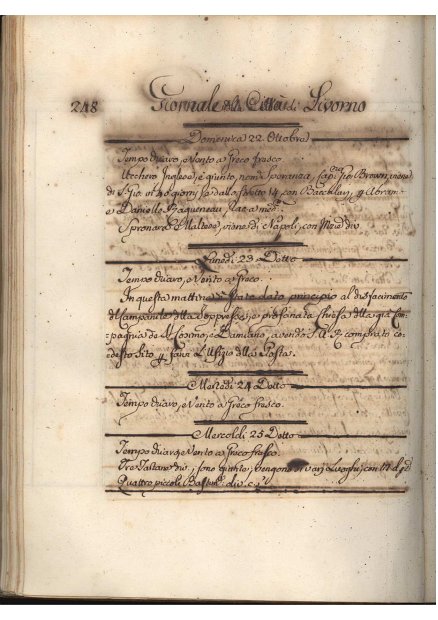 248 Giornale della Città di Livorno
Domenica 22 Ottobre
Tempo chiaro, e Vento a Greco fresco.
Urchero Inglese è giunto, nom. Speranza, Cap. Gio Brown, viene
di S. Gio. in 20 giorni, con Baccalari, p Abram
e Daniello Ragueneau
Spronara Maltese, viene di Napoli, con Mzie div.
Lunedi 23 Detto
Tempo chiaro, e Vento a Greco.
In questa mattina è stato dato principio al disfacimento
del Campanile della soppressa, e profanata Chiesa della già Com:
pagnia de SS. Cosimo, e Damiano, avendo S. A. R. comprato co:
desto Sito p farvi l'Ufizio della Posta.
Martedi 24 Detto
Tempo chiaro, e Vento a Greco fresco.
Mercoldi 25 Detto
Tempo chiaro, e Vento a Greco fresco.
Tre Tartane div. sono giunte, vengono di varj Luoghi, con
Quattro piccoli Bastim. div. c. s.